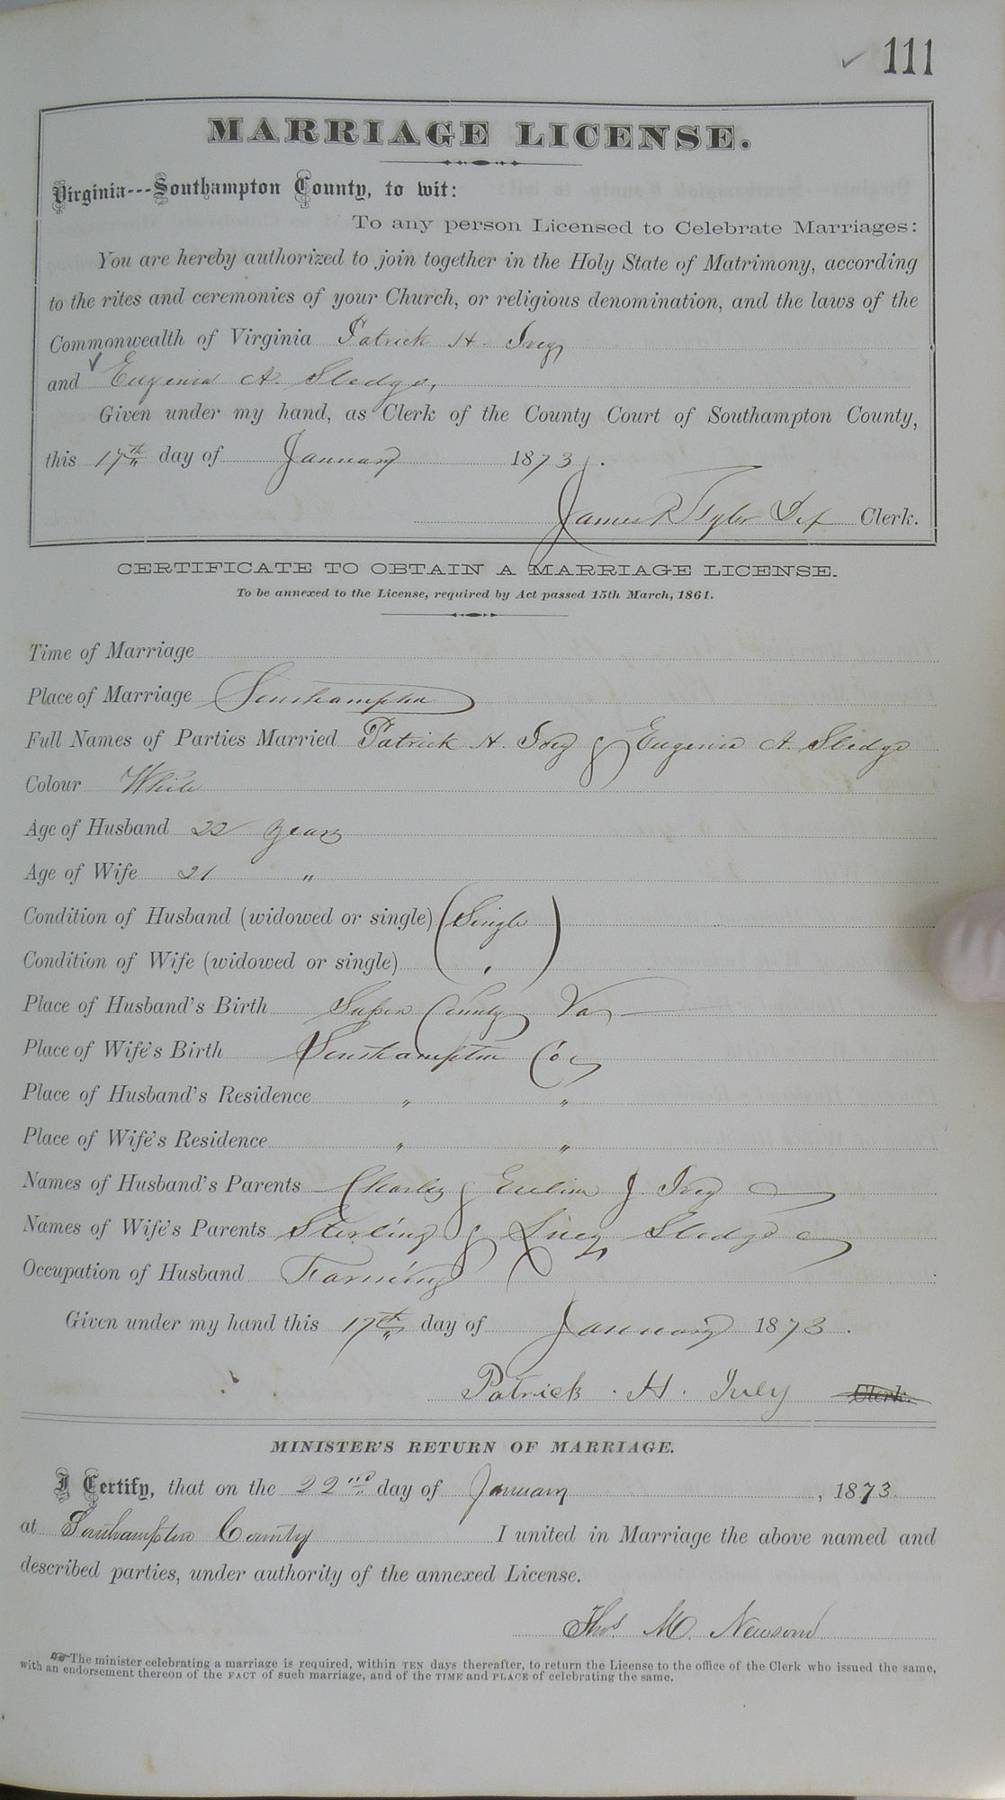 111
MARRIAGE LICENSE.
Virginia---Southampton County, to wit:
To any person Licensed to Celebrate Marriages:
You are hereby authorized to join together in the Holy State of Matrimony, according
to the rites and ceremonies of your Church, or religious denomination, and the laws of the
Commonwealth of Virginia Patrick H. Ivey
and Eugenia A. Sledge,
Given under my hand, as Clerk of the County Court of Southampton County,
this 17th day of January 1873.
James R Tyler Clerk.
CERTIFICATE TO OBTAIN A MARRIAGE LICENSE.
To be annexed to the License, required by Act passed 15th March, 1861.
Time of Marriage
Place of Marriage Southampton
Full Names of Parties Married Patrick H. Ivey & Eugenia A. Sledge
Colour White
Age of Husband 22 years
Age of Wife 21 "
Condition of Husband (widowed or single) (Single)
Condition of Wife (widowed or single) "
Place of Husband's Birth Sussex County Va
Place of Wife's Birth Southampton Co
Place of Husband's Residence " "
Place of Wife's Residence " "
Names of Husband's Parents Charles & J. Ivey
Names of Wife's Parents Sterling & Lucy Sledge
Occupation of Husband Farming
Given under my hand this 17th day of January 1873.
Patrick . H. Ively Clerk.
MINISTER'S RETURN OF MARRIAGE.
I Certify, that on the 22nd day of January, 1873.
at Southampton County I united in Marriage the above named and
described parties, under authority of the annexed License.
Thos. M. Newsom
The minister celebrating a marriage is required, within TEN days thereafter, to return the License to the office of the Clerk who issued the same,
with an endorsement thereon of the FACT of such marriage, and of the TIME and PLACE of celebrating the same.